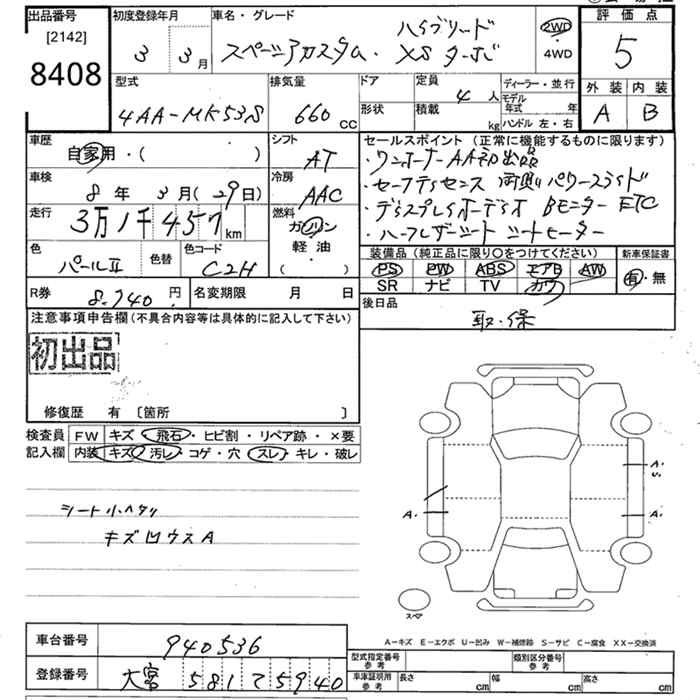 出品番号 [2142] 8408
初度登録年月 3 3月
車名・グレード ハイブリード
スペーシアカスタム・XSターボ
2WD・4WD
評価点 5
外装 内装
A B
型式 4AA-MK53S
排気量 660 CC
ドア 形状
定員 4人
積載 kg
ディーラー・並行
モデル年式 年
ハンドル 左・右
車歴 自家用・( )
シフト AT
車検 8年 3月(29日)
冷房 AAC
走行 3万1千457km
燃料 ガソリン 軽油 ( )
色 パールII 色替
色コード C2H
R券 8.740円
名変期限 月 日
セールスポイント(正常に機能するものに限ります)
・ワンオーナー AA初出品
・セーフティセンス 両側パワースライド
・ディスプレイオーディオ Bモニター ETC
・ハーフレザーシート シートヒーター
装備品(純正品に限り○をつけてください)
PS PW ABS エアB AW
SR ナビ TV カワ
新車保証書 有・無
後日品
取・保
注意事項申告欄(不具合内容等は具体的に記入して下さい)
初出品
修復歴 有 〔箇所 〕
検査員記入欄
FW キズ・飛石・ヒビ割・リペア跡・×要
内装 キズ・汚レ・コゲ・穴・スレ・キレ・破レ
シート小ヘタリ
キズ凹ウスA
A.
A.
A.
スペア
A-キズ E-エクボ U-凹み W-補修跡 S-サビ C-腐食 XX-交換済
車台番号 940536
登録番号 大宮 581 て 5940
型式指定番号 参考
類別区分番号 参考
車庫証明用 参考 長さ cm 幅 cm 高さ cm